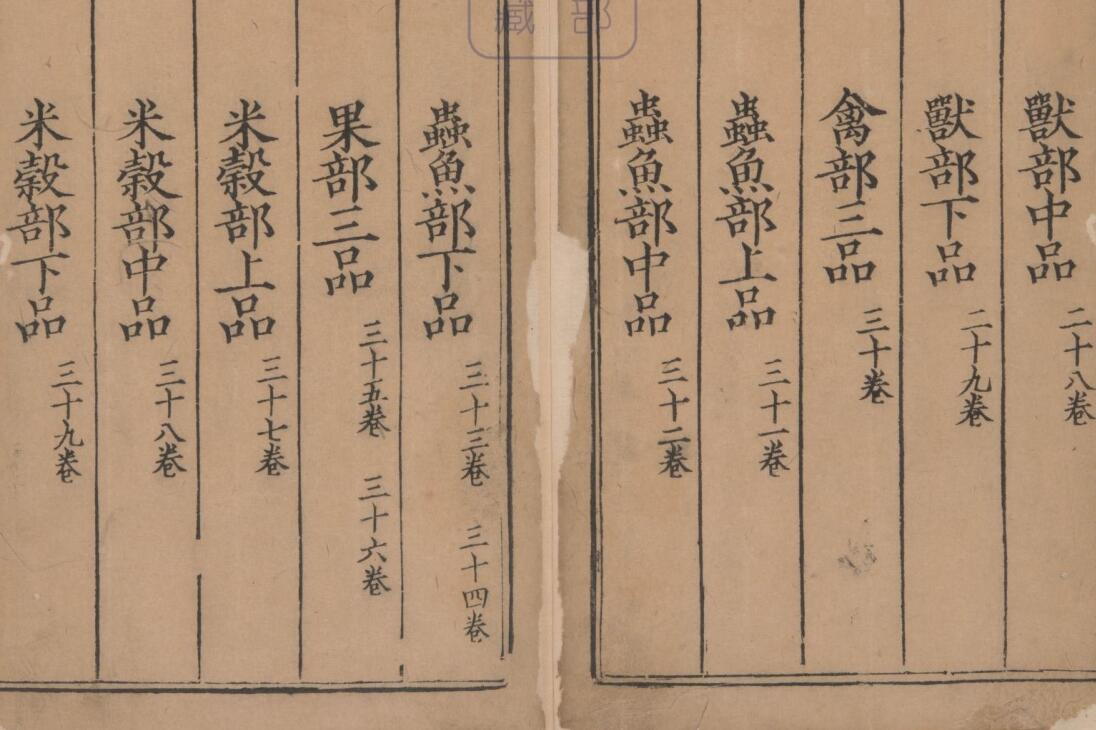 獸部中品 二十八卷
獸部下品 二十九卷
禽部三品 三十卷
蟲魚部上品 三十一卷
蟲魚部中品 三十二卷
蟲魚部下品 三十三卷 三十四卷
果部三品 三十五卷 三十六卷
米穀部上品 三十七卷
米穀部中品 三十八卷
米穀部下品 三十九卷
部藏